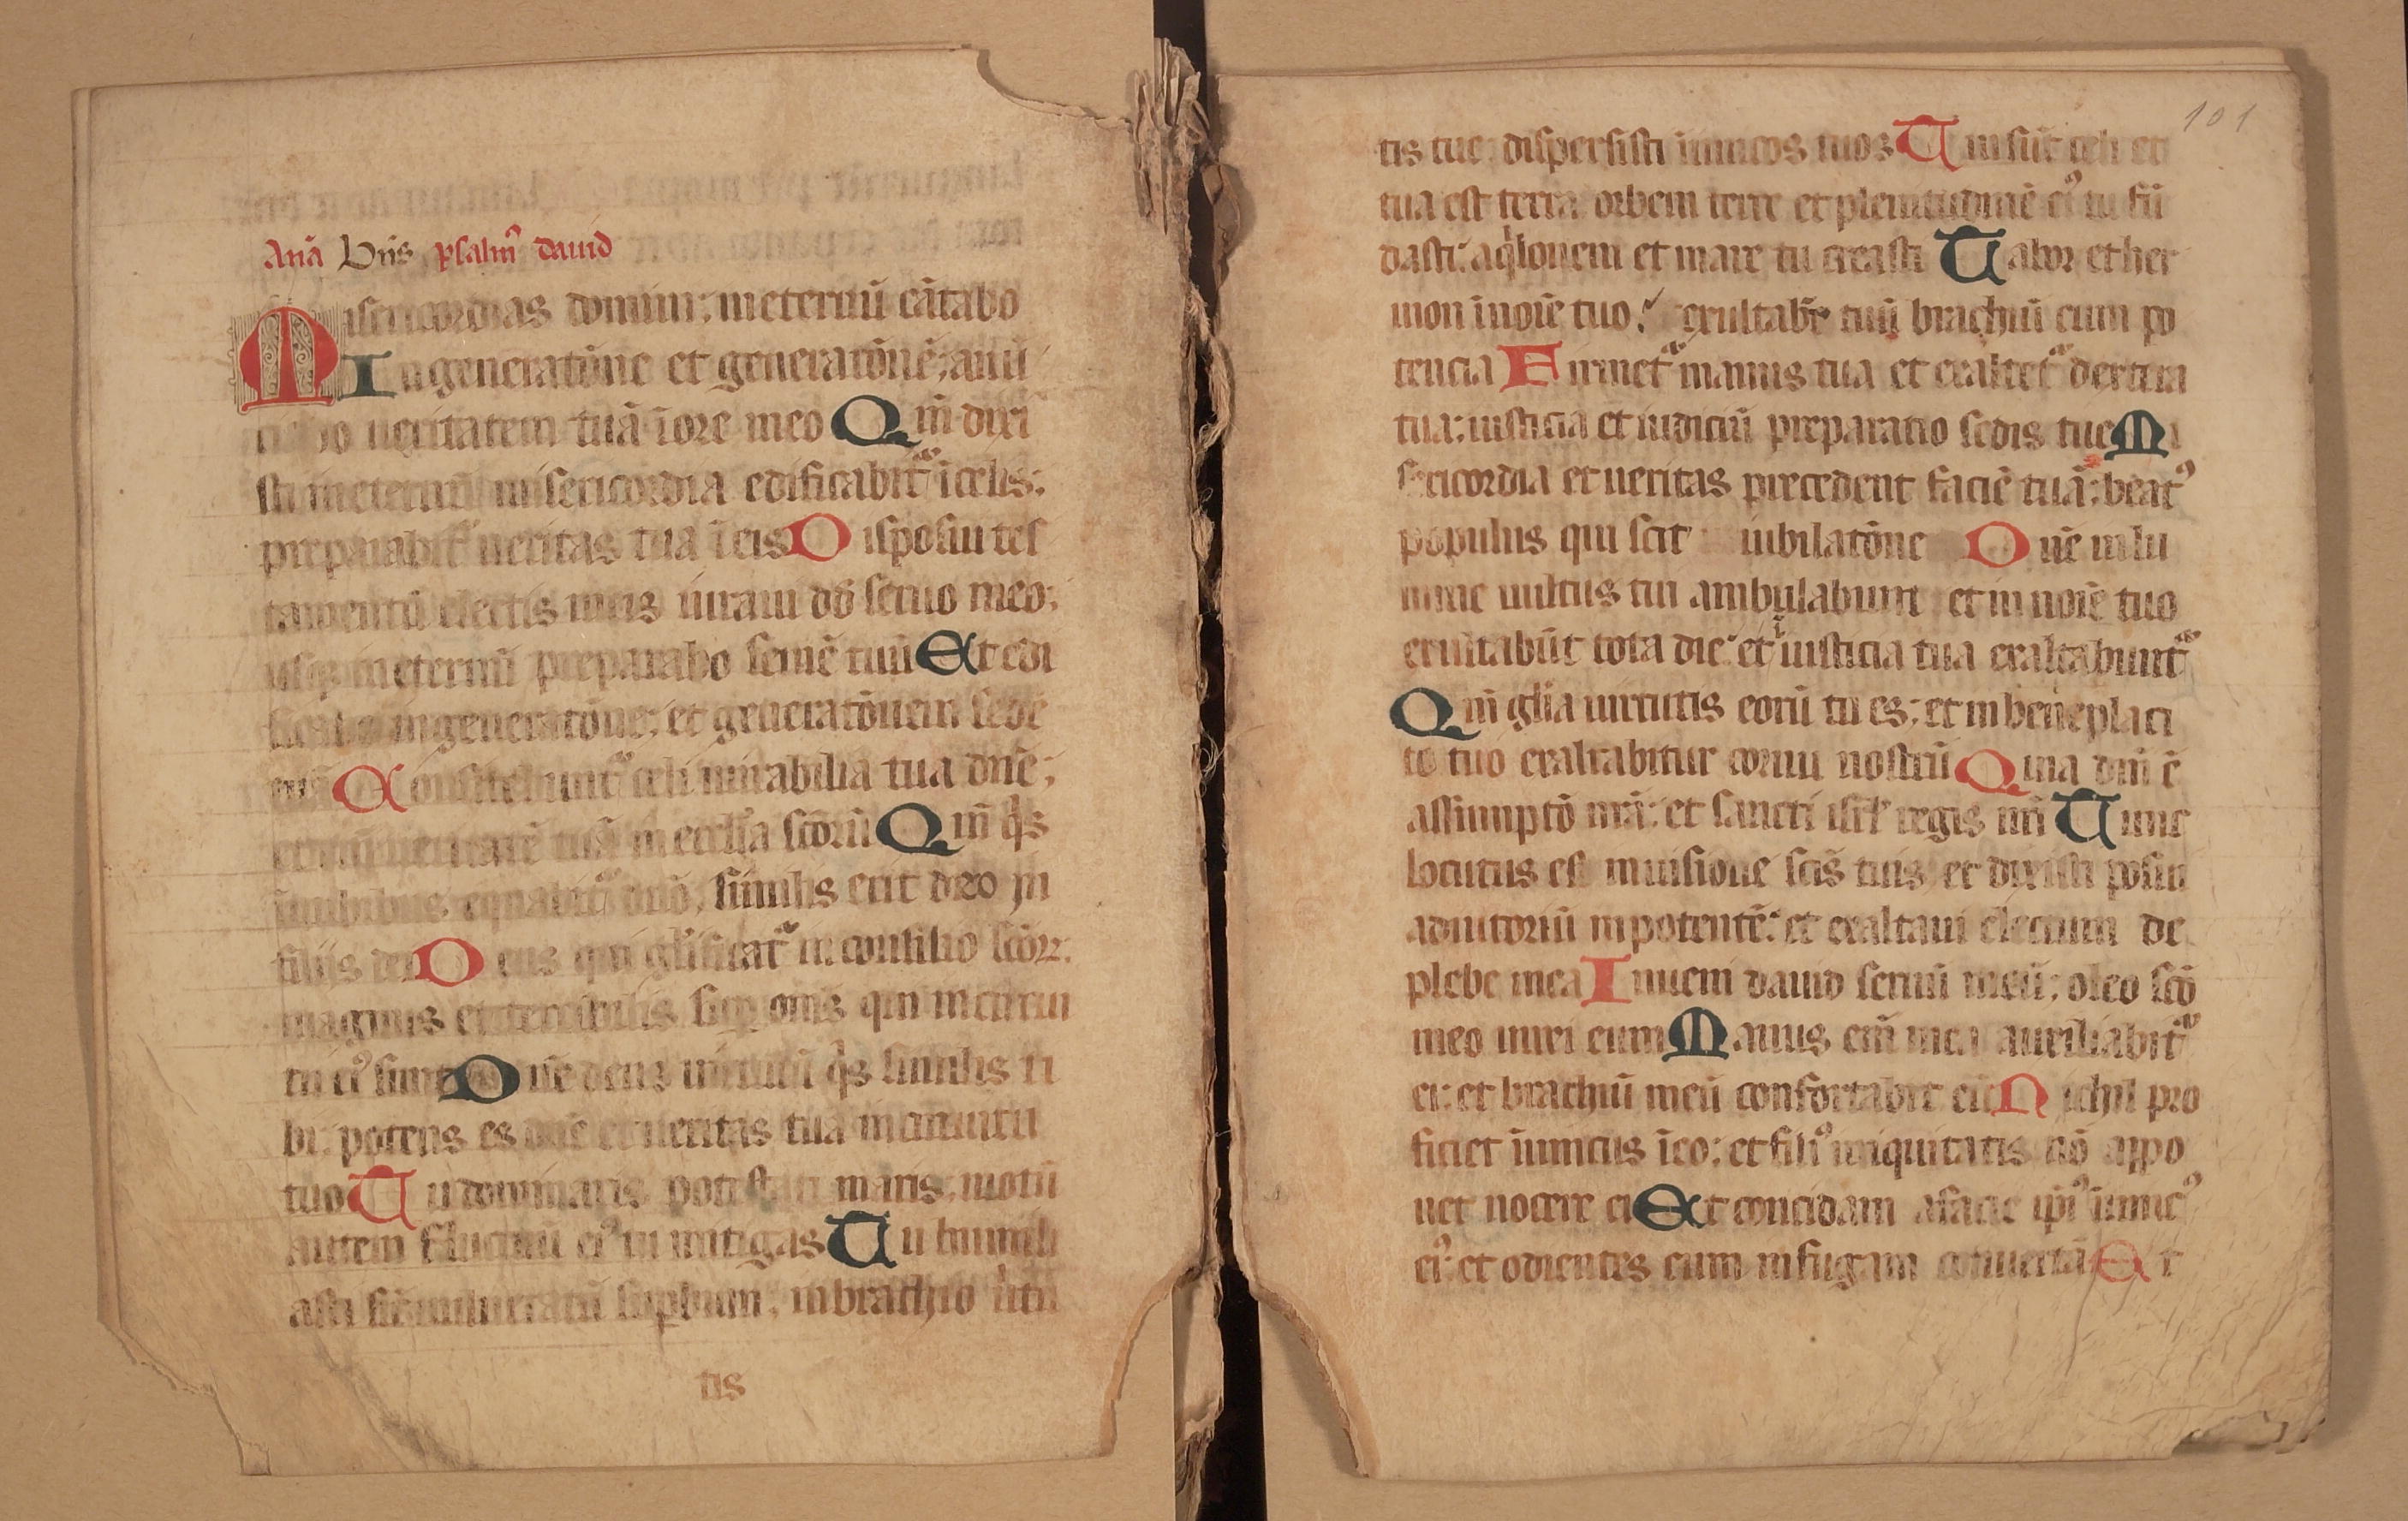 Anā Bn̄s psalm᷒ dauid
Misericordias domini: ineternū cātabo
In generatōne et generatōnē: anū
ciabo ueritatem tuā i ore meo Qm̄ dixi
sti ineternū misericordia edificabit᷑ i celis:
preparabit᷑ ueritas tua ī eis Disposui tes
tamentū electis meis iuraui dd̄ seruo meo:
usq̨ ineternū preparabo semē tuū Et edi
ficabo ingeneratōne: et generatōnem sedē
tuā Confitebunt᷑ celi mirabilia tua dn̄e:
etenī ueritatē tuā in eccl̄ia scōrū Qm̄ qͥs
inubibus equabit᷑ dn̄o, similis erit deo in
filijs dei Deus qui glīficat᷑ in consilio scōꝝ:
magnus et terribilis sup om̄s qui incircui
tu ei᷒ sunt Dn̄e deus uirtutū qͥs similis ti
bi: potens es dn̄e et ueritas tua incircuitu
tuo Tu dominaris potestati maris: motū
autem fluctuū ei᷒ tu mitigas Tu humili
asti sic̄ uulneratū supbum: inbrachio uirtu
tis
101
tis tue dispersisti inimicos tuos Tui sūt celi et
tua est terra orbem terre et plenitudinē ei᷒ tu fū
dasti: aqͥlonem et mare tu creasti Tabor et her
mon ī noīe tuo: exultabt̄ tuū brachiū cum po
tencia Firmet᷑ manus tua et exaltet᷑ dextera
tua: iusticia et iudiciū preparatio sedis tue Mi
sericordia et ueritas precedent faciē tuā: beat᷒
populus qui scit iubilatōne Dn̄e inlu
mine uultus tui ambulabunt et in noīe tuo
exultabūt tota die: et ī iusticia tua exaltabunt᷑
Qm̄ glīa uirtutis eorū tu es: et in beneplaci
to tuo exaltabitur cornu nostrū Quia dn̄i ē
assumptō nrā: et sancti isrl̄ regis nrī Tunc
locutus es inuisione scīs tuis et dixisti posui
adiutoriū inpotentē: et exaltaui electum de
plebe mea Inueni dauid seruū meū: oleo scō
meo unxi eum Manus enī mea auxiliabit᷑
ei: et brachiū meū confortabit eū Nichil pro
ficiet īimicus ī eo: et fili᷒ iniquitatis nō appo
net nocere ei Et concidam afacie ipi᷒ īimic᷒
ei᷒: et odientes eum infugam conuertā Et